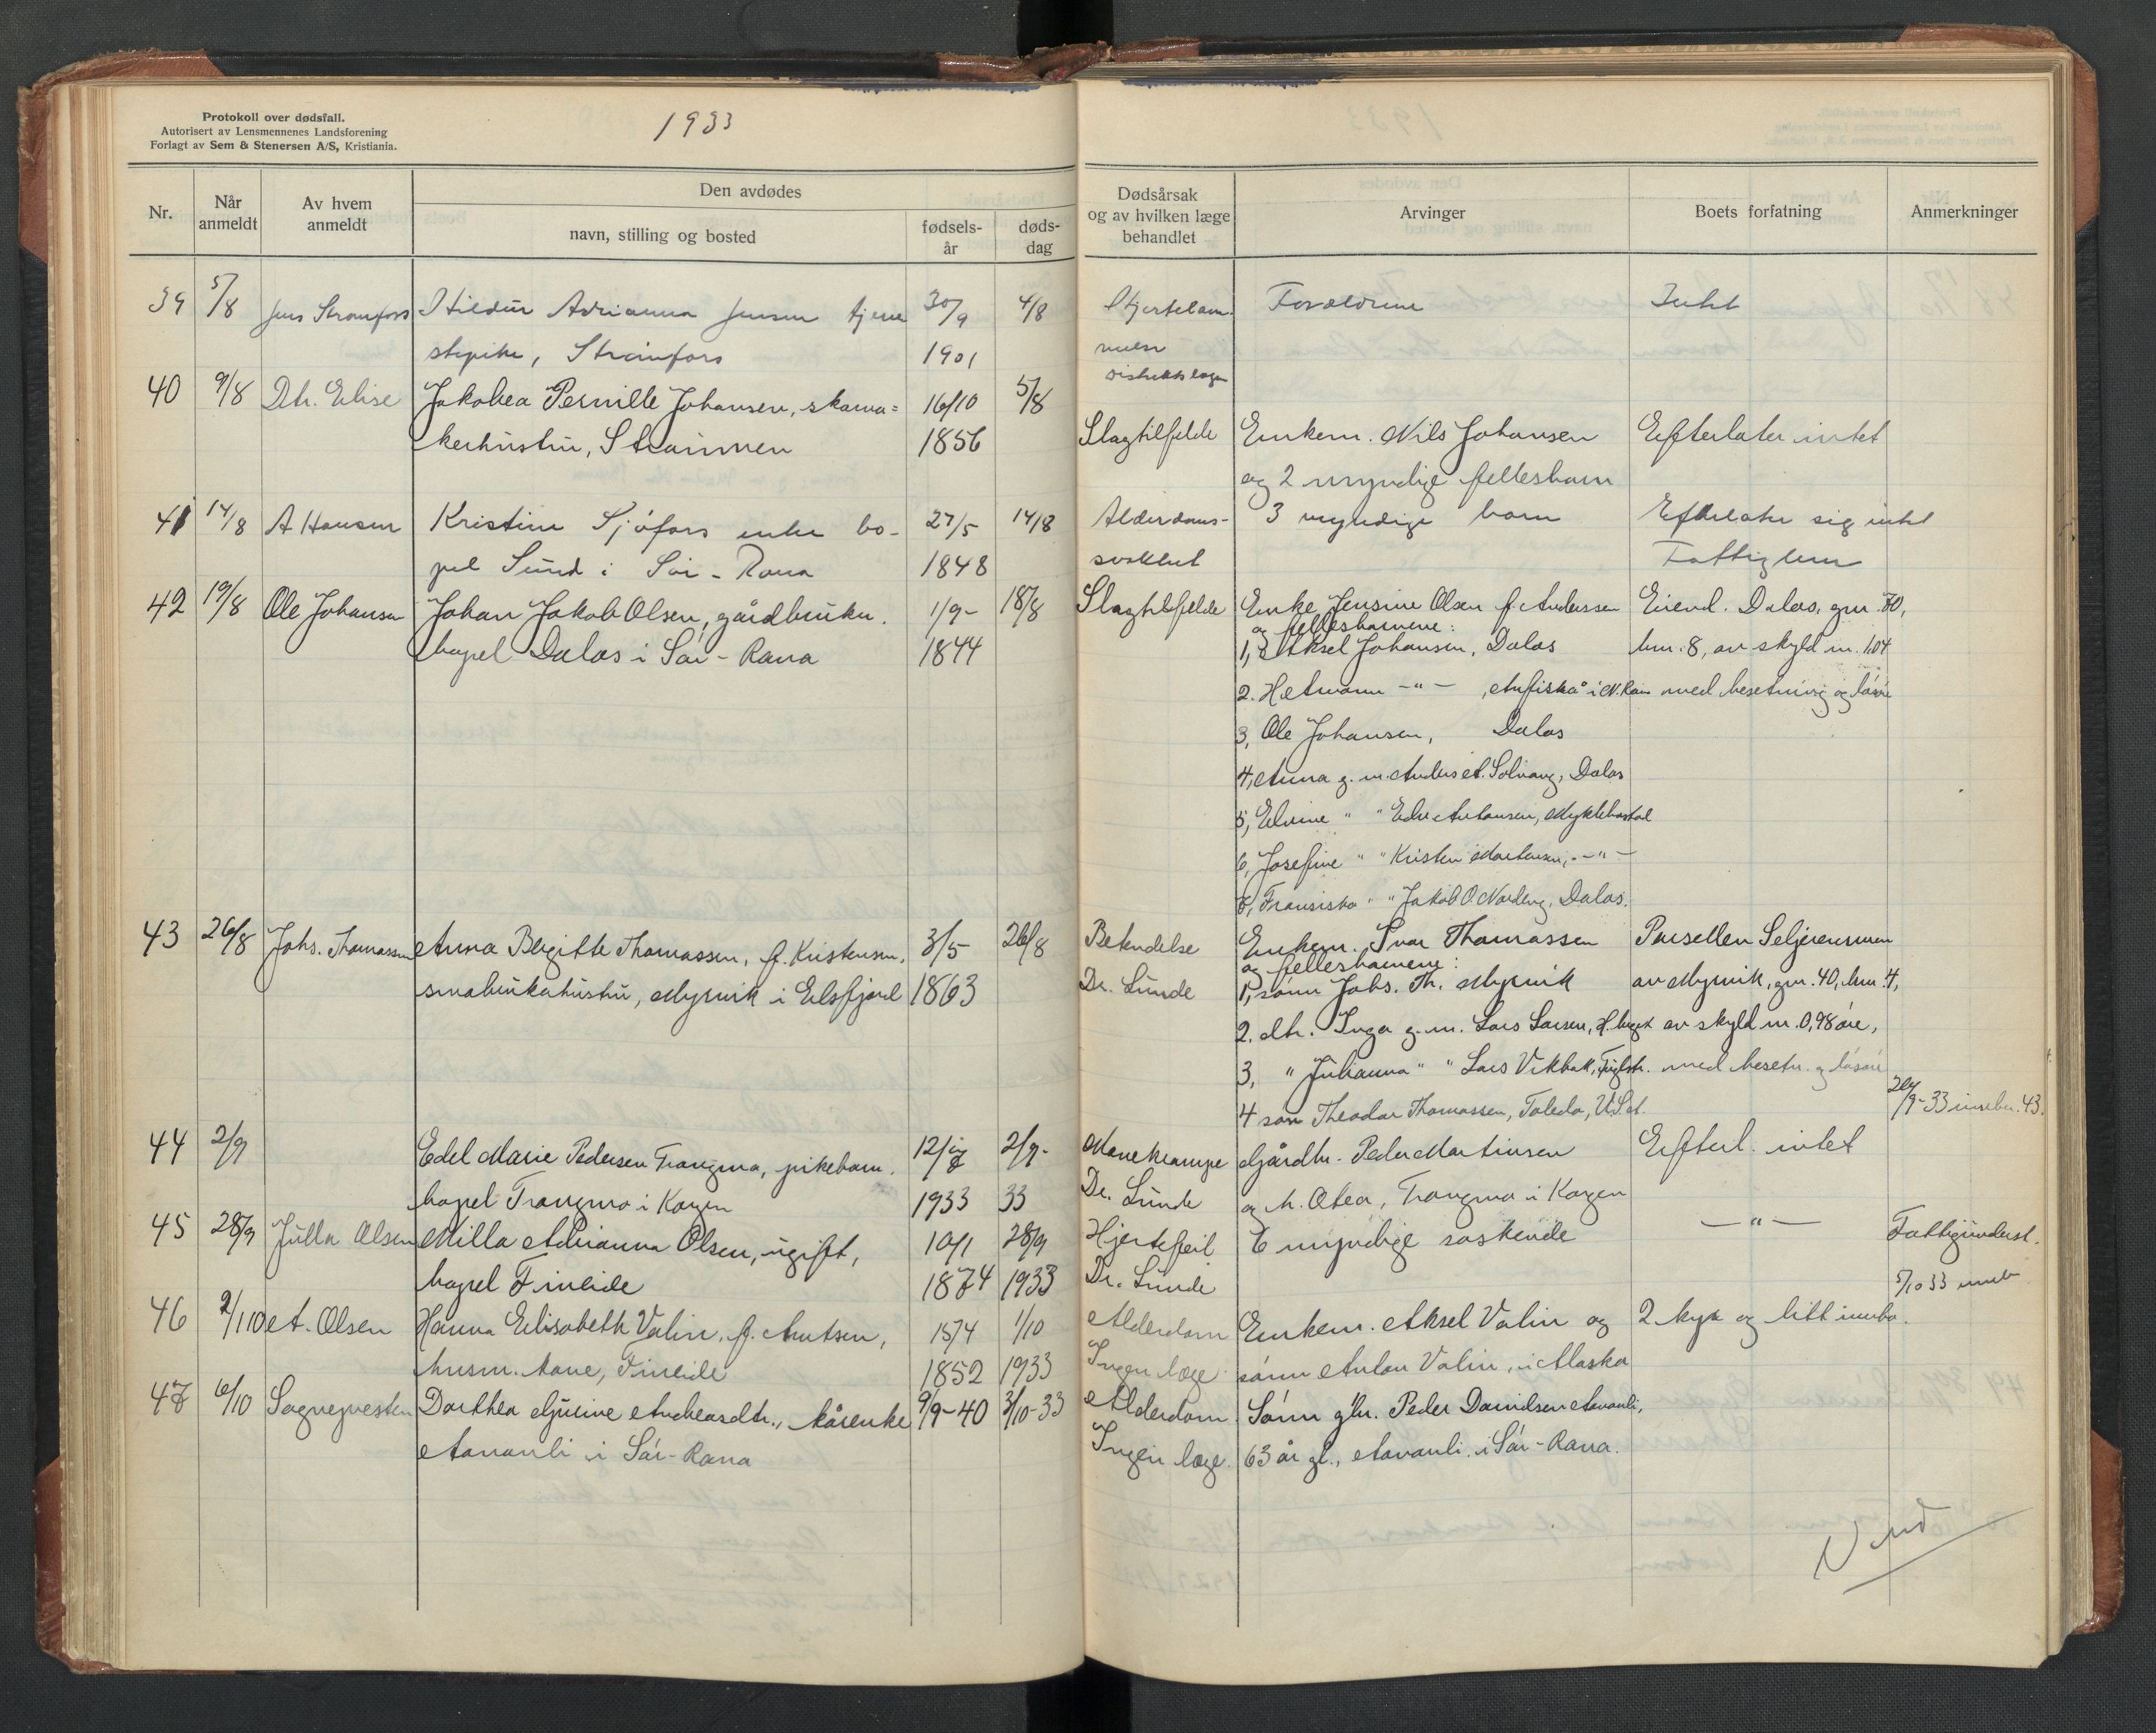 Protokoll over dødsfall.
Autorisert av Lensmennenes Landsforening
Forlagt av Sem & Stenersen A/S, Kristiania.
1933
Nr.
Når anmeldt
Av hvem anmeldt
Den avdødes
navn, stilling og bosted
fødsels-
år
døds-
dag
Dødsårsak
og av hvilken læge
behandlet
Arvinger
Boets forfatning
Anmerkninger
39 5/8 Jens Straumfors Hildur Adrianna Jensen tjene 30/9 4/8 Foreldrene Intet
stepike, Straumfors 1901
distriktslægen
40 9/8 Dtr. Elise Jakobea Pernille Johansen, skoma= 16/10 5/8
kerhustru, Straumen 1856 Slagtilfelde Enkem. Nils Johansen Efterlater intet
og 2 myndige fellesbarn
41 14/8 A Hansen Kristine Sjøfors enke bo- 27/5 14/8 Alderdoms- 3 myndige barn Efterlater sig intet
pel Sund i Sør-Rana 1848 svakhet Fattiglem
42 19/8 Ole Johansen Johan Jakob Olsen, gårdbruker. 1/9- 18/8 Slagtilfelde Enke Jensine Olsen f. Anderssen Eiend. Dalos, gnr. 80,
og fellesbarnene:
bopel Dalos i Sør-Rana 1844 1, Aksel Johansen, Dalos bnr. 8, av skyld m. 1,04
2. Hermann -"- , i N. Rana med besetning og løsøre
3, Ole Johansen, Dalos
4, Anna g. m. Anders A. Solvang, Dalos
5, Elvine " " Edv. Antonsen, Myklebostad
6, Josefine " " Kristen Martensen, -"-
7, Fransiska " " Jakob O. Norderg, Dalos.
43 26/8 Johs. Thomassen Anna Bergitte Thomassen, f. Kristensen, 3/5- 26/8 Betendelse Enkem. Ivar Thomassen Parsellen
og fellesbarnene:
småbrukerhustru, Myrvik i Elsfjord 1863 Dr. Lunde 1, sønn Johs. Th. Myrvik av Myrvik, gnr. 40, bnr. 4,
2. dtr. Inga g. m. Lars Larsen, av skyld m. 0,98 øre,
3, " Julianna " " Lars Vikbakk, med besetn. og løsøre
4 sønn Theodor Thomassen, Toledo, U.S.A. 20/9-33 innber. 43.
44 2/9 Edel Marie Pedersen Trangmo, pikebarn. 12/7 2/9- Mavekrampe Gårdbr. Peder Martinsen Efterl. intet
bopel Trangmo i Korgen 1933 33 Dr. Lunde og h. Otea, Trangmo i Korgen
45 28/9 Julla Olsen Milla Adrianna Olsen, ugift, 10/1 28/9 Hjertefeil 6 myndige søskende -"- Fattigunderst.
bopel Finneide 1874 1933 Dr. Lunde 5/10 33 innb
46 2/10 A. Olsen Hanna Elisabeth Valin, f. Amtsen, 15/4 1/10 Alderdom Enkem. Aksel Valin og 2 kyr og litt innbo.
husm. kone, Finneide 1852 1933 Ingen læge sønn Anton Valin, i Alaska
47 6/10 Sognepresten Dorthea Gjurine Andreasdtr., kårenke 9/9-40 3/10-33 Alderdom Sønn g.br. Peder Danielsen Aavanli,
Aavanli i Sør-Rana Ingen læge. 63 år gl., Aavanli i Sør-Rana.
Vend